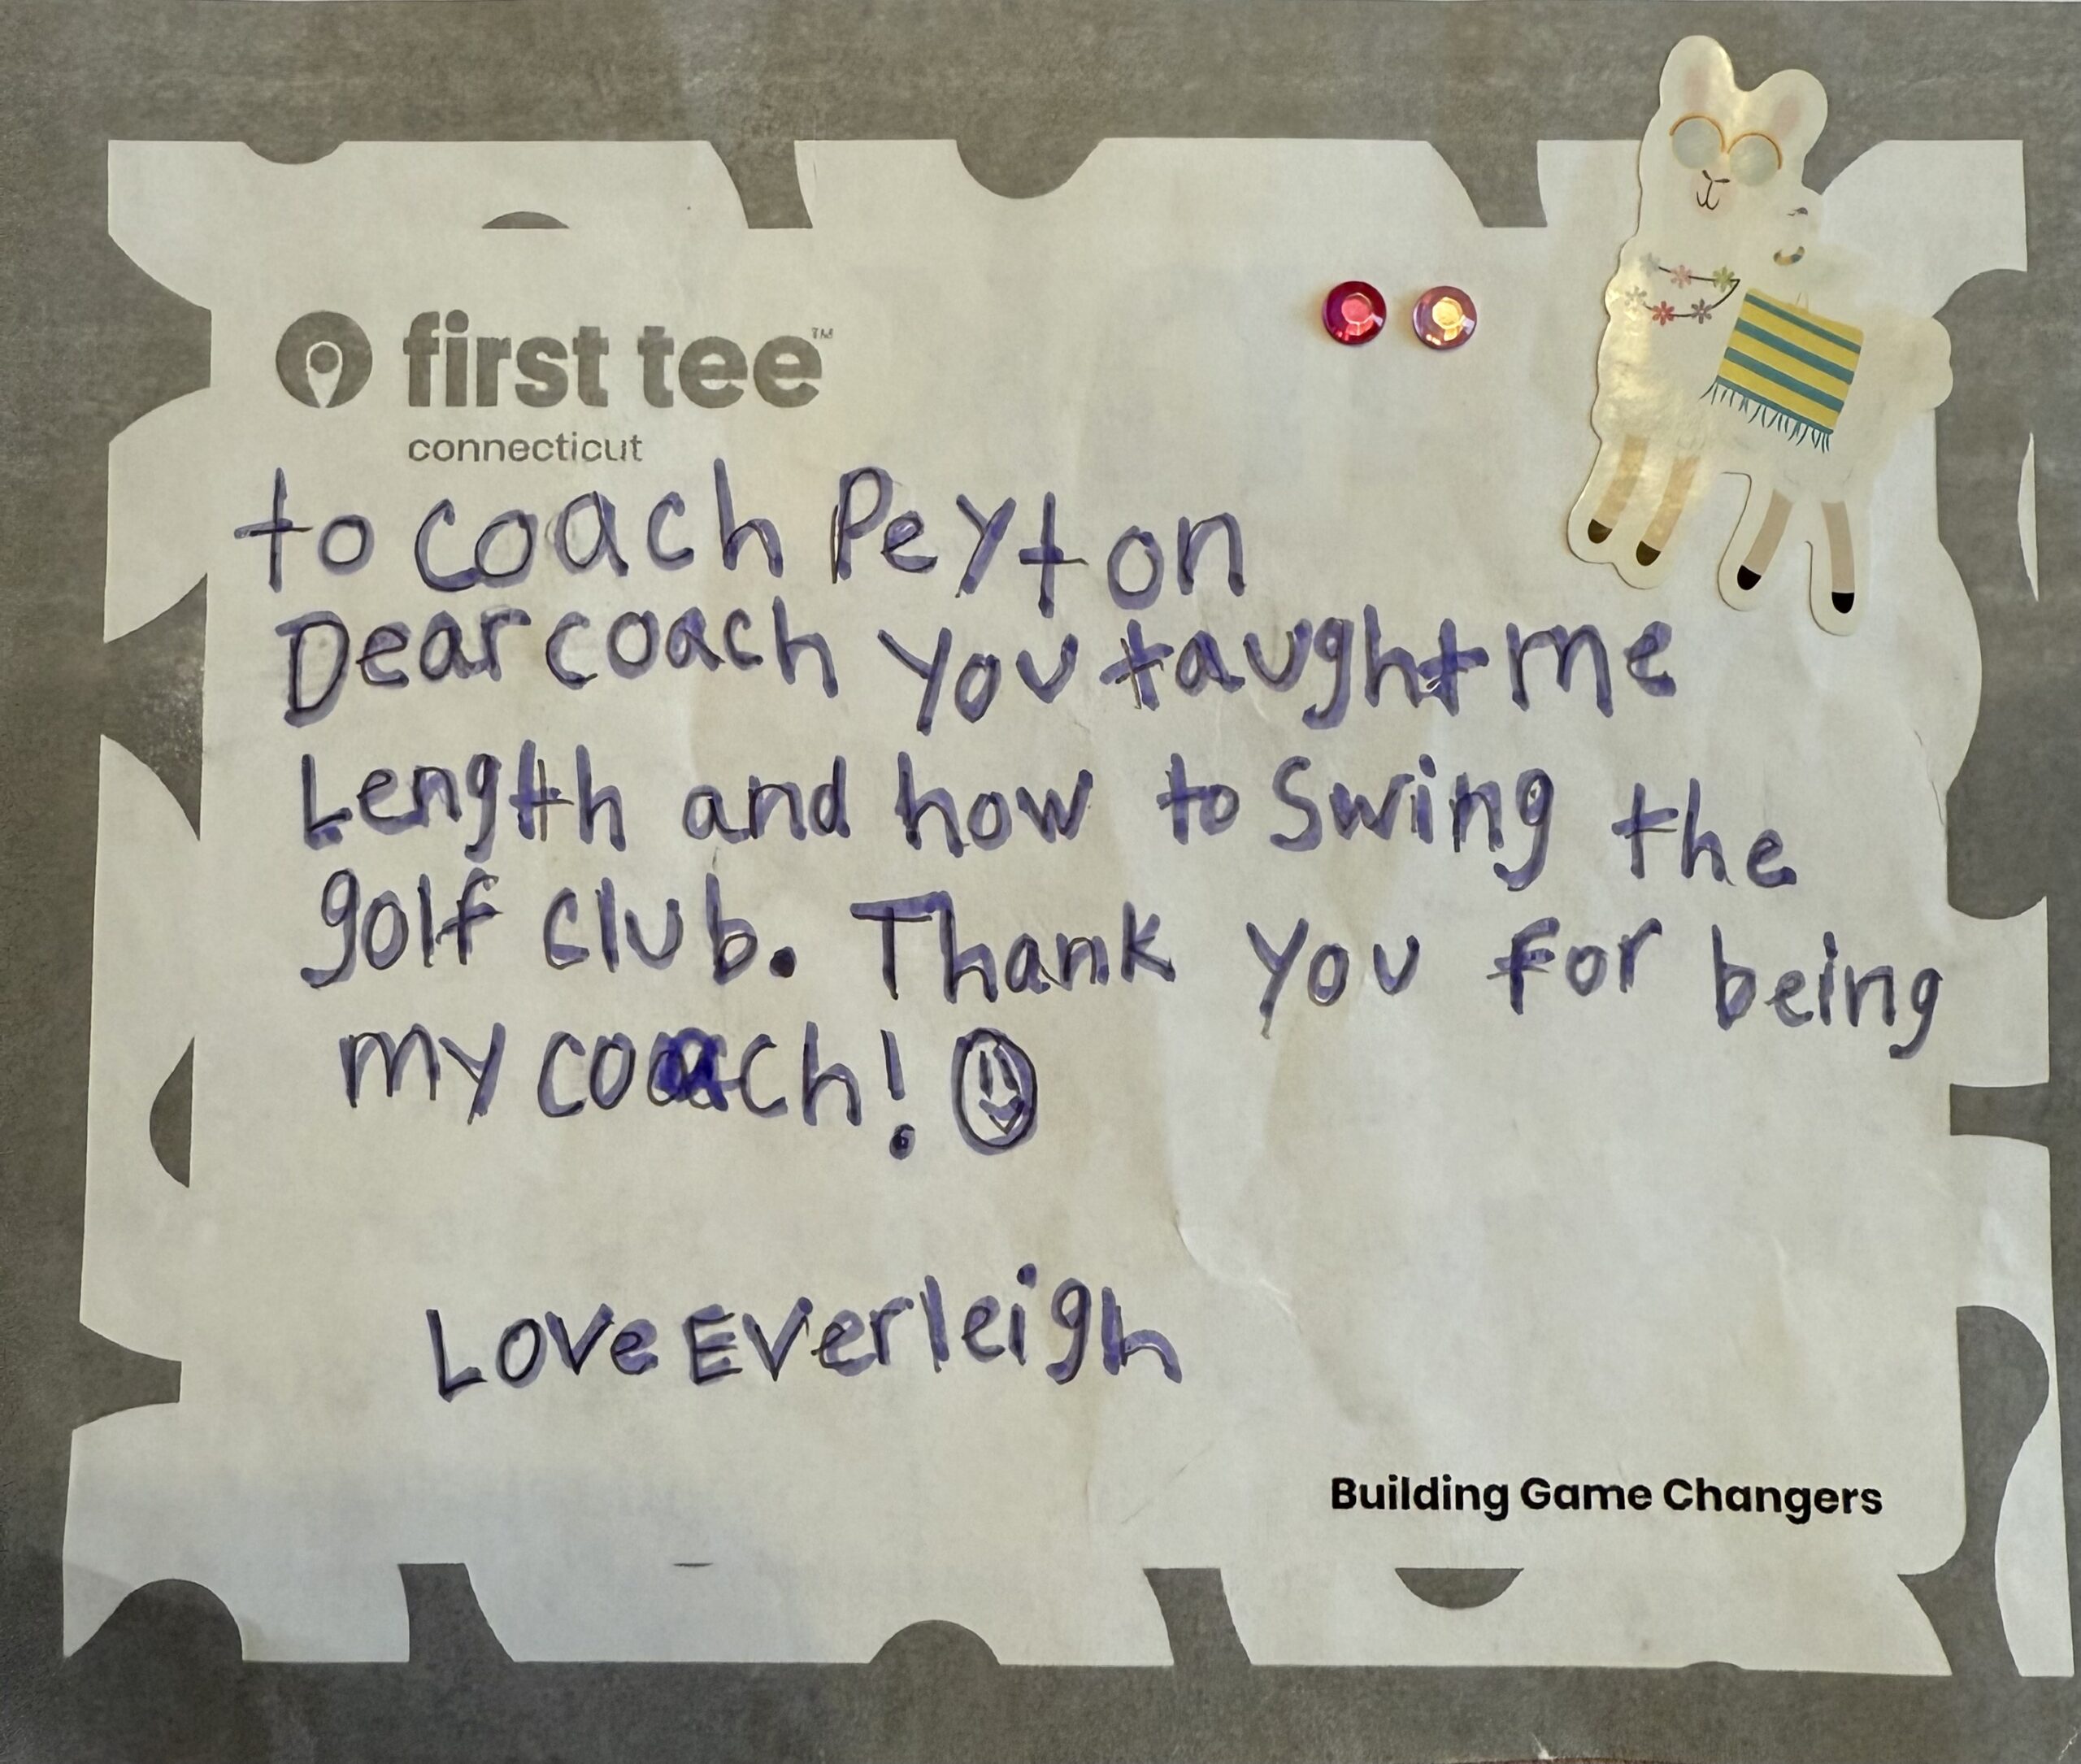 first tee™
connecticut
to coach Peyton
Dear coach you taught me
Length and how to swing the
golf club. Thank you for being
my coach!
Love Everleigh
Building Game Changers